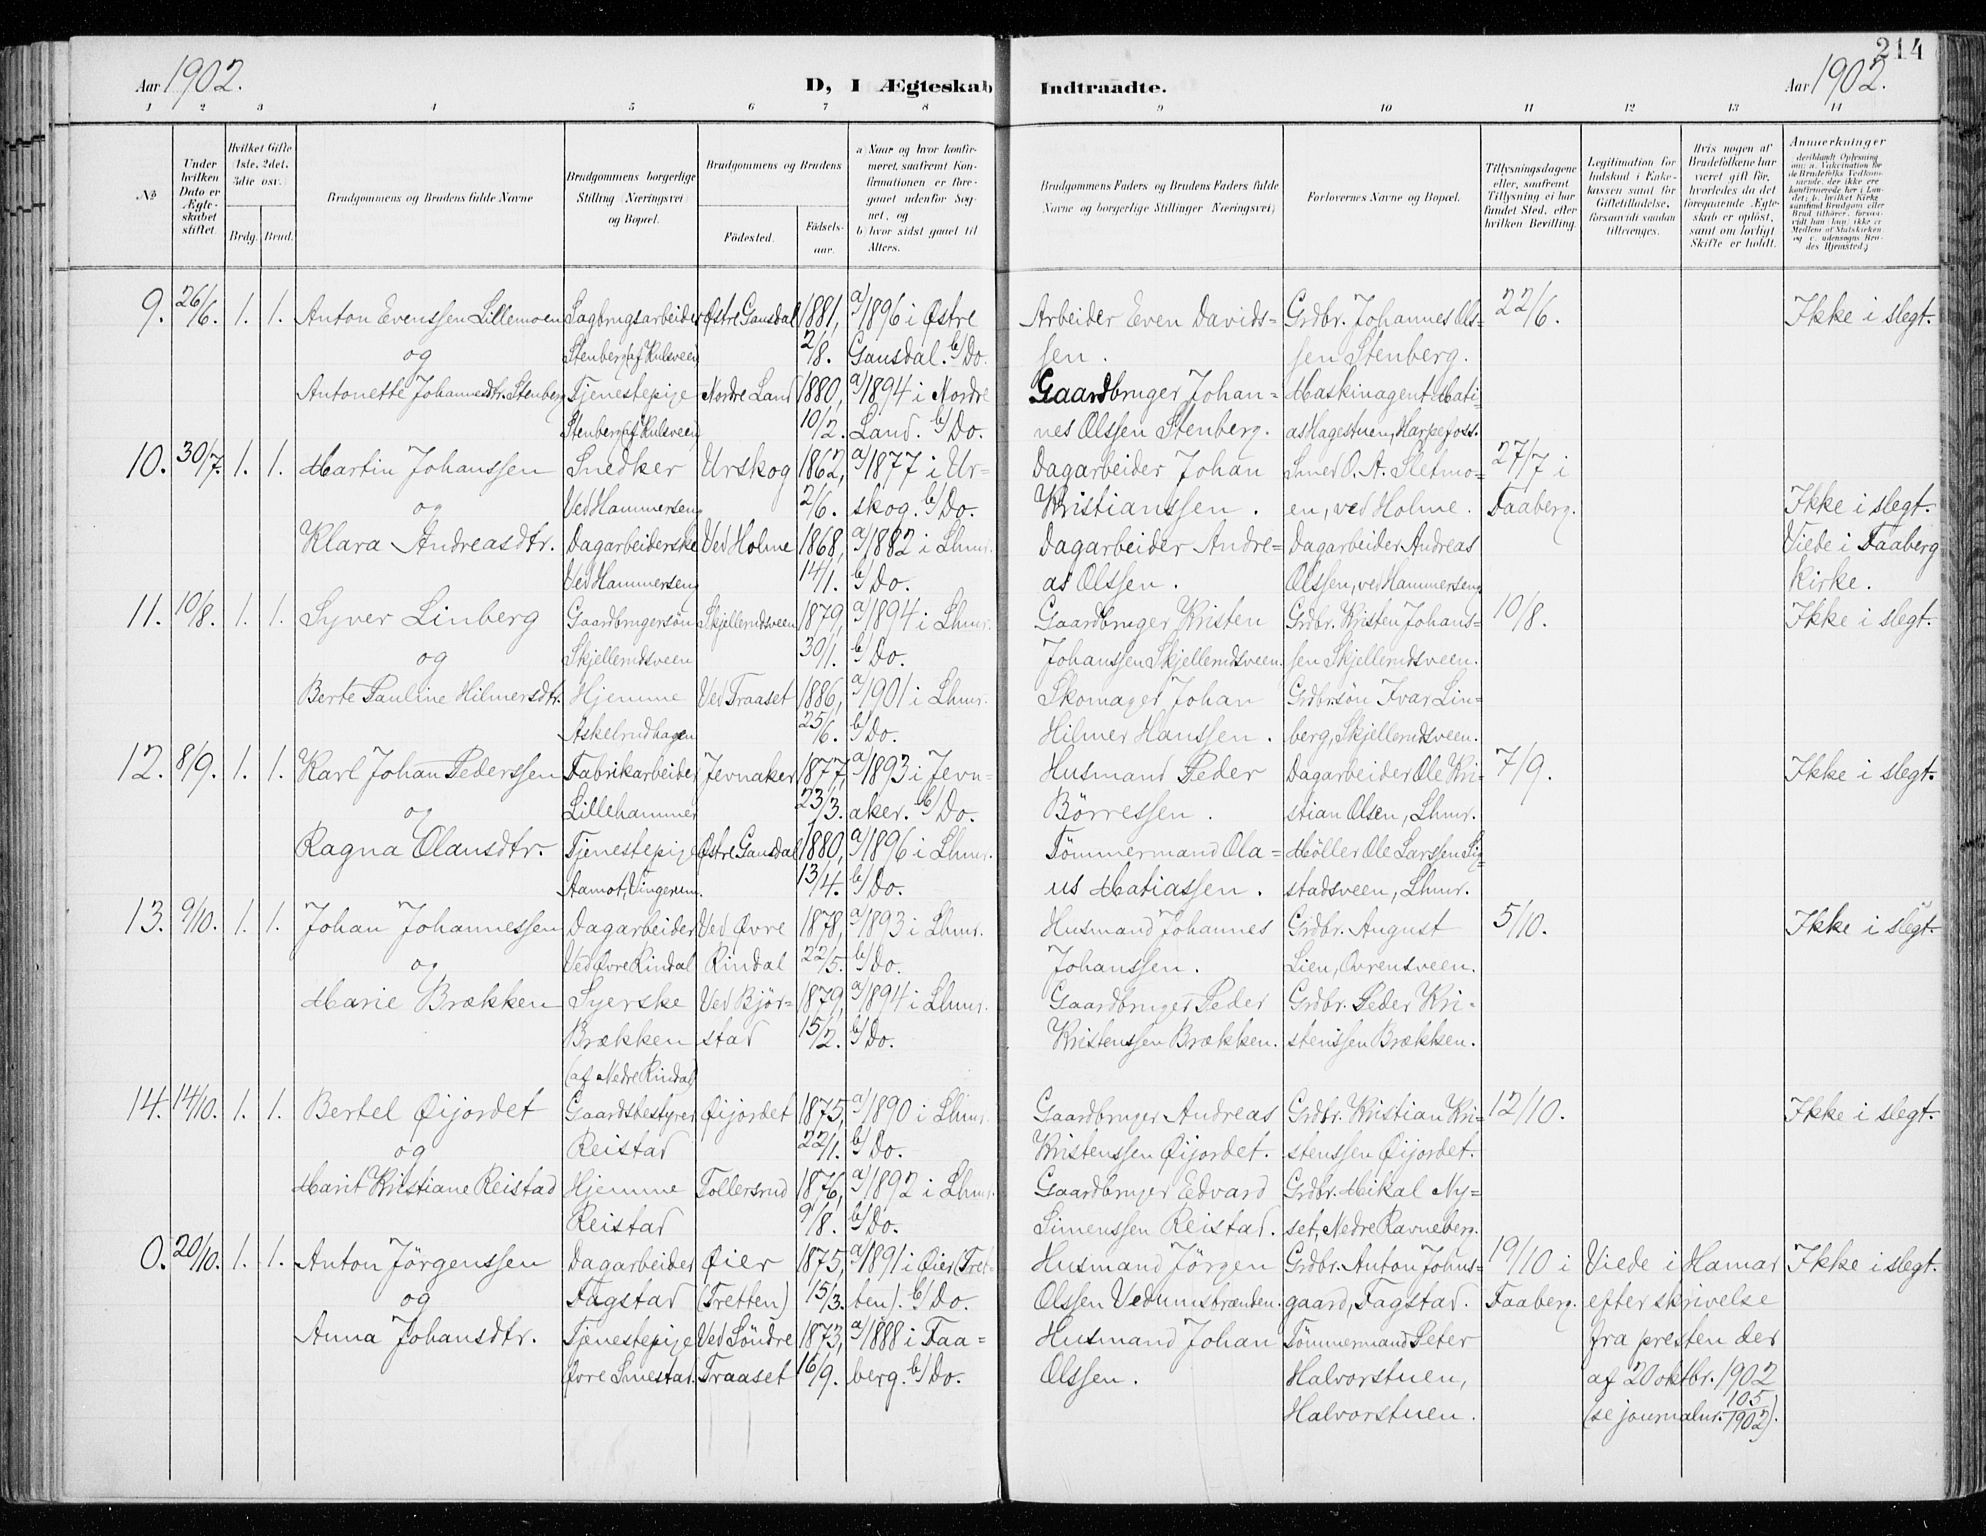 214
Aar 1902.
D, I Ægteskab Indtraadte.
Aar 1902.
1 2 3 4 5 6 7 8 9 10 11 12 13 14
No
Under hvilken Dato er Ægteskabet stiftet.
Hvilket Gifte (1ste, 2det, 3die osv.)
Brdg. Brud.
Brudgommens og Brudens fulde Navne
Brudgommens borgerlige Stilling (Næringsvei) og Bopæl.
Brudgommens og Brudens
Fødested.
Fødselsaar.
a) Naar og hvor konfirmeret, saafremt Konfirmationen er foregaaet udenfor Sognet, og
b) hvor sidst gaaet til Alters.
Brudgommens Faders og Brudens Faders fulde Navne og borgerlige Stillinger (Næringsvei)
Forlovernes Navne og Bopæl.
Tillysningsdagene eller, saafremt Tillysning ei har fundet Sted, efter hvilken Bevilling.
Legitimation for Indskud i Enkekassen samt for Giftetilladelse, forsaavidt saadan tiltrænges.
Hvis nogen af Brudefolkene har været gift før, hvorledes da det foregaaende Ægteskab er opløst, samt om lovligt Skifte er holdt.
Anmerkninger
9. 26/6. 1. 1. Anton Evenssen Lillemoen Sagbrugsarbeider Østre Gausdal 1881, a/1896 i Østre Arbeider Even Davids- Grdbr. Johannes Ols- 22/6. Ikke i slegt.
og Stenberg (af Hulsveen) 2/8. Gausdal. b/Do. sen. sen Stenberg.
Antonette Johannesdtr. Stenberg Tjenestepige Nordre Land 1880, a/1894 i Nordre Gaardbruger Johan- Maskinagent Mati-
Stenberg (af Hulsveen) 10/2. Land. b/Do. nes Olssen Stenberg. as Hagestuen, Harpefoss.
10. 30/7. 1. 1. Martin Johanssen Snedker Urskog 1862, a/1877 i Ur- Dagarbeider Johan Smed O. A. Sletmo- 27/7 i
og Ved Hammerseng 2/6. skog. b/Do. Kristianssen. en, ved Holme. Faaberg. Ikke i slegt.
Klara Andreasdtr. Dagarbeiderske Ved Holme 1868, a/1882 i Lhmr. Dagarbeider Andre- Dagarbeider Andreas Viede i Faaberg
Ved Hammerseng 14/1. b/Do. as Olssen. Olssen, ved Hammerseng Kirke.
11. 10/8. 1. 1. Syver Linberg Gaardbrugersøn Skjellerudsveen 1879, a/1894 i Lhmr. Gaardbruger Kristen Grdbr. Kristen Johans- 10/8. Ikke i slegt.
og Skjellerudsveen 30/1. b/Do. Johanssen Skjellerudsveen. sen Skjellerudsveen.
Berte Pauline Hilmersdtr. Hjemme Ved Traaset 1886, a/1901 i Lhmr. Skomager Johan Grdbr.søn Ivar Lin-
Askelrudhagen 25/6. b/Do. Hilmer Hanssen. berg, Skjellerudsveen.
12. 8/9. 1. 1. Karl Johan Pederssen Fabrikarbeider Jevnaker 1877, a/1893 i Jevn- Husmand Peder Dagarbeider Ole Kri- 7/9. Ikke i slegt.
og Lillehammer 23/3. aker. b/Do. Børressen. stian Olsen, Lhmr.
Ragna Olausdtr. Tjenestepige Østre Gausdal 1880, a/1896 i Lhmr. Tømmermand Ola- Møller Ole Larssen Sig-
Aamot, Vingerum. 13/4. b/Do. us Matiassen. stadsveen, Lhmr.
13. 9/10. 1. 1. Johan Johannessen Dagarbeider Ved Øvre 1878, a/1893 i Lhmr. Husmand Johannes Grdbr. August 5/10. Ikke i slegt.
og Ved Øvre Rindal Rindal 22/5. b/Do. Johanssen. Lien, Ovrensveen.
Marie Brækken Syerske Ved Bjør- 1879, a/1894 i Lhmr. Gaardbruger Peder Grdbr. Peder Kri-
Brækken stad 15/2. b/Do. Kristenssen Brækken. stenssen Brækken.
(af Nedre Rindal)
14. 14/10. 1. 1. Bertel Øijordet Gaardsbestyrer Øijordet 1875, a/1890 i Lhmr. Gaardbruger Andreas Grdbr. Kristian Kri- 12/10. Ikke i slegt.
og Reistad 22/1. b/Do. Kristenssen Øijordet. stenssen Øijordet.
Marit Kristiane Reistad Hjemme Tollersrud 1876, a/1892 i Lhmr. Gaardbruger Edvard Grdbr. Mikal Ny-
Reistad 9/8. b/Do. Simenssen Reistad. set, Nedre Ravneberg.
0. 20/10. 1. 1. Anton Jørgenssen Dagarbeider Øier 1875, a/1891 i Øier (Tret- Husmand Jørgen Grdbr. Anton Johns- 19/10 i Viede i Hamar Ikke i slegt.
og Fagstad (Tretten) 15/3. ten). b/Do. Olssen Vedumsbrænden. gaard, Fagstad. Faaberg. efter skrivelse
Anna Johansdtr. Tjenestepige Ved Søndre 1873, a/1888 i Faa- Husmand Johan Tømmermand Peter fra presten der
Øvre Smestad. Traaset 16/9. berg. b/Do. Olssen. Halvorstuen, af 20 oktbr. 1902
Halvorstuen. (se journalnr. 105/1902).